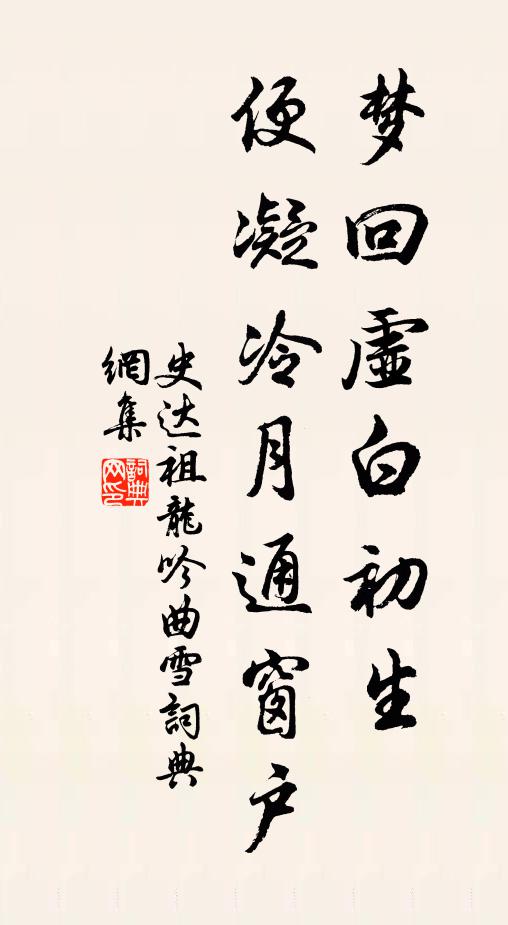 梦回虚白初生
便凝冷月通窗户
史达祖龍吟曲雪詞典
網集
詞典
网印